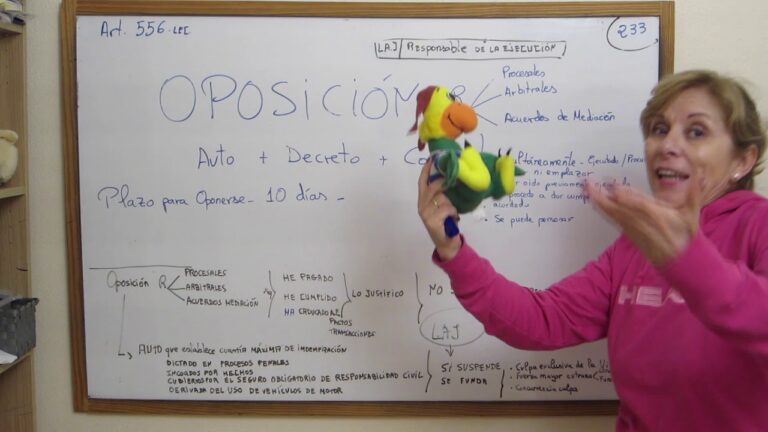 Art. 556 LEC
LAJ Responsable DE LA EJECUCIÓN
233
OPOSICIÓN R
Procesales
Arbitrales
Acuerdos de Mediación
Auto + Decreto + Co
ultáneamente - Ejecutado / Procu
ni emplazar
oido previamente
a dar
acordado
Se puede personar
Plazo para Oponerse - 10 días -
Oposición R
PROCESALES
ARBITRALES
ACUERDOS MEDIACIÓN
HE PAGADO
HE CUMPLIDO
HA CADUCADO AE
PACTOS
TRANSACCIONES
LO JUSTIFICO
NO
LAJ
AUTO que establece CUANTÍA MÁXIMA DE INDEMNIZACIÓN
DICTADO EN PROCESOS PENALES
INCOADOS POR HECHOS
CUBIERTOS POR EL SEGURO OBLIGATORIO DE RESPONSABILIDAD CIVIL
DERIVADA DEL USO DE VEHÍCULOS DE MOTOR
SI SUSPENDE
SE FUNDA
Culpa exclusiva de la Vi
Fuerza mayor extraña
Concurrencia culpa
HEA